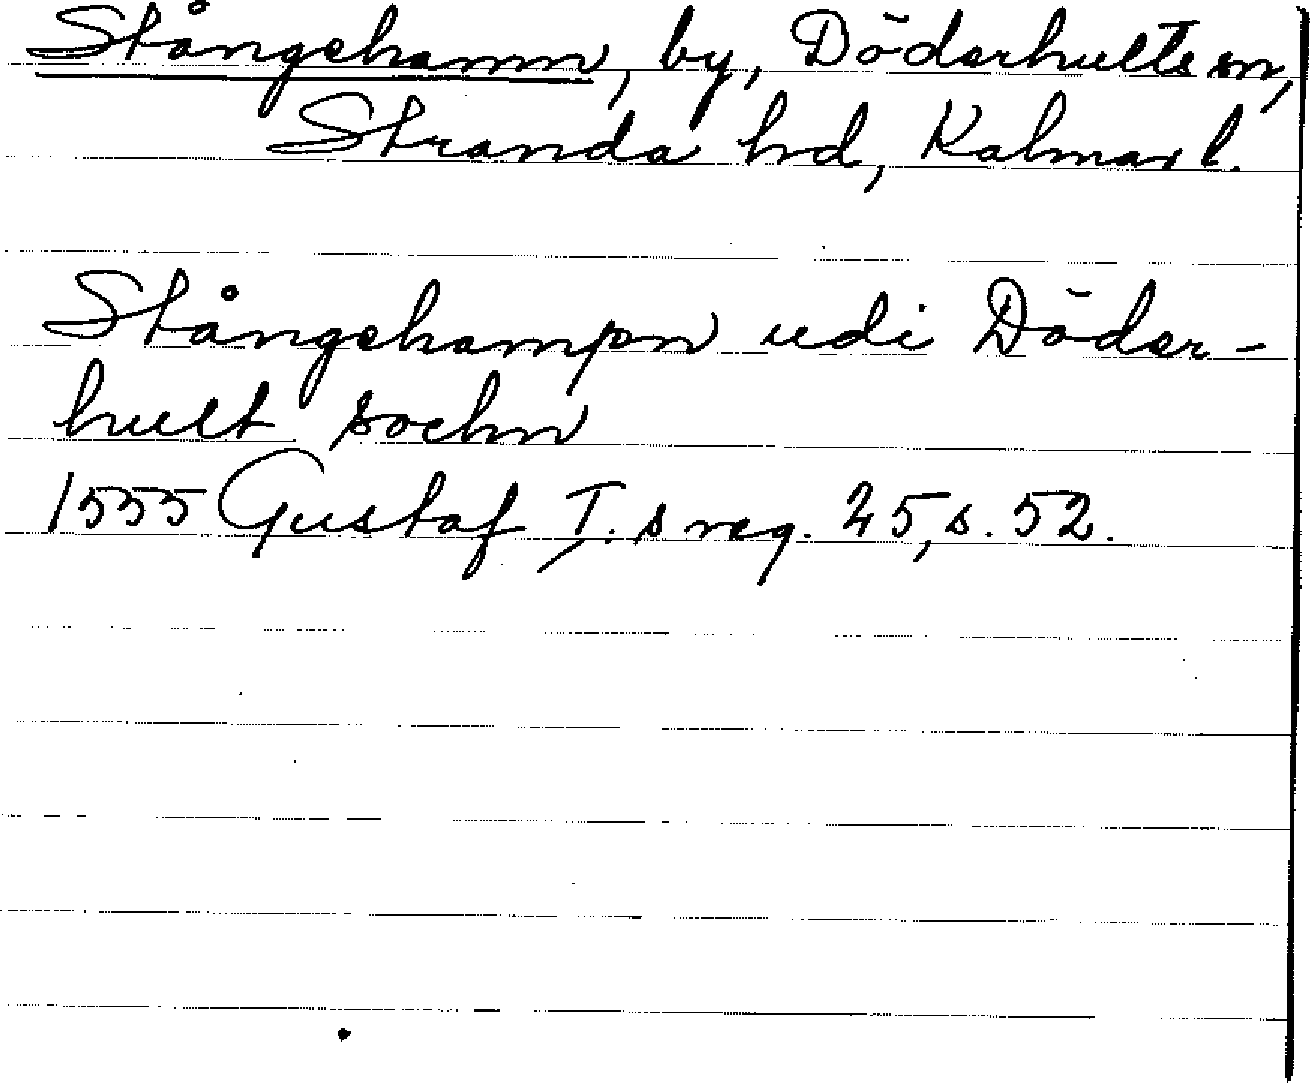 Stångehamn, by, Döderhults sn,
Stranda hd, Kalmar l.
Stångehampn udi Döder-
hult sochn
1555 Gustaf I:s reg. 25, s. 52.